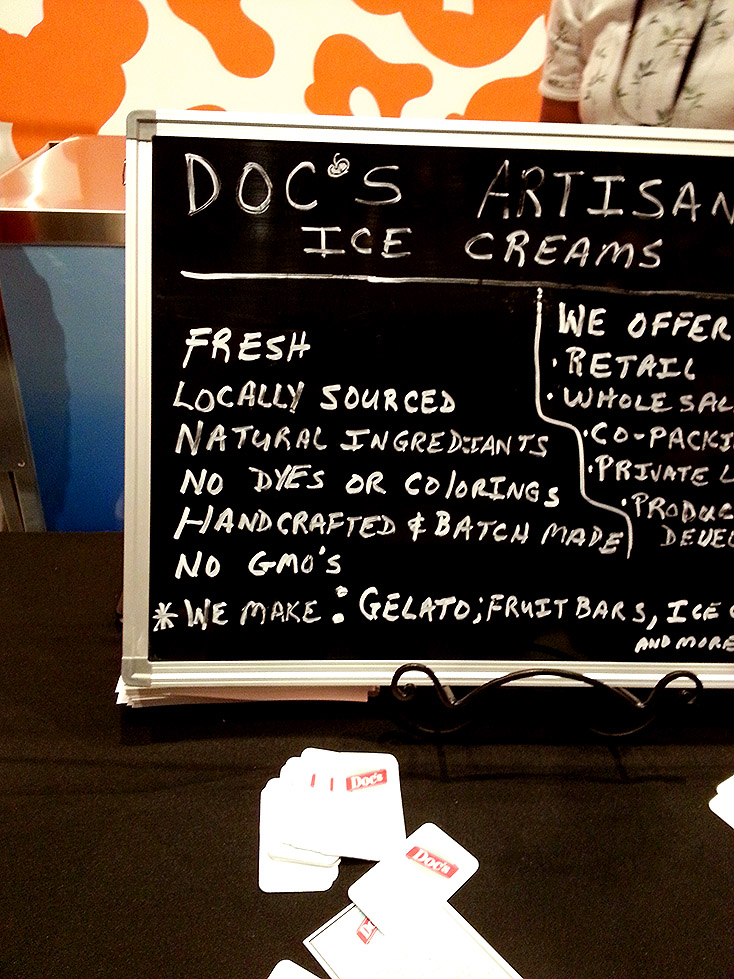 DOC'S ARTISAN
ICE CREAMS
FRESH
LOCALLY SOURCED
NATURAL INGREDIANTS
NO DYES OR COLORINGS
HANDCRAFTED & BATCH MADE
NO GMO'S
WE OFFER
• RETAIL
• WHOLESAL
• CO-PACKI
• PRIVATE L
• PRODUC
DEVEL
* WE MAKE: GELATO; FRUIT BARS, ICE C
AND MORE
Doc's
Doc's